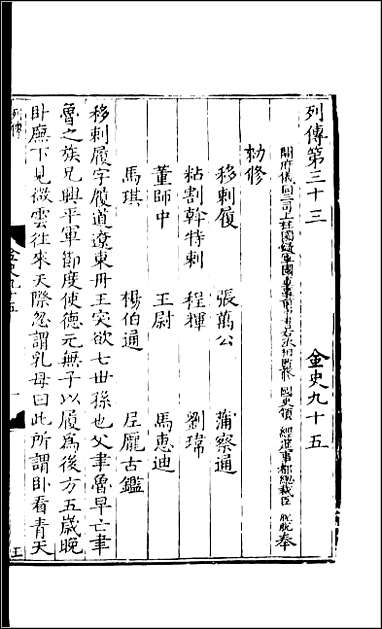 列傳第三十三　金史九十五
開府儀同三司上柱國錄軍國重事前中書右丞相監修國史領經筵事都總裁臣脫脫奉
勑修
移剌履　張萬公　蒲察通
粘割斡特剌　程輝　劉瑋
董師中　王尉　馬惠迪
馬琪　楊伯通　尼厖古鑑
移剌履字履道遼東丹王突欲七世孫也父聿魯早亡聿
魯之族兄興平軍節度使德元無子以履爲後方五歲晚
卧廡下見微雲往來天際忽謂乳母曰此所謂卧看青天
列傳
金史九十五
一